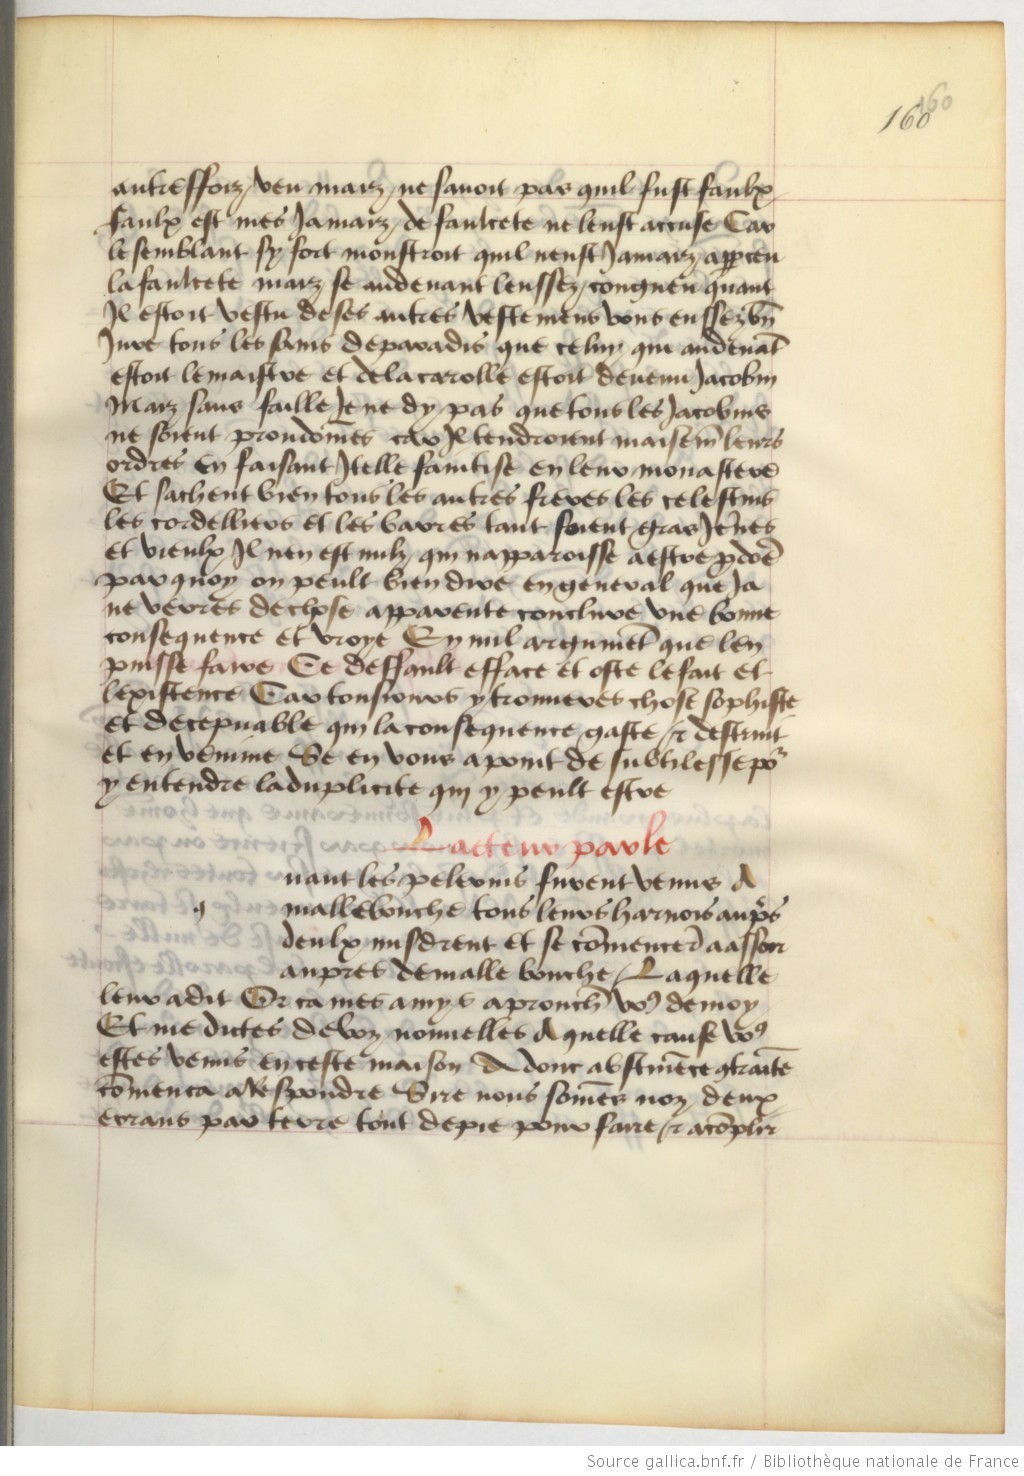 160
160
autreffoiz veu maiz ne savoit pas quil fust faulx
faulx est mes Jamaiz de faulcete ne leust accuse Car
le semblant sy fort monstroit quil neust Jamaiz apperceu
la faulcete maiz se audevant leussez congneu quant
Il estoit vestu de ses autres vestemens vous eussez bn̄
Jure tous les sains de paradis que celuy qui audevāt
estoit le maistre et de la carolle estoit devenu Jacobin
Maiz sans faille Je ne dy pas que tous les Jacobins
ne soient proudōmes car Il tendroient maisem̄ leurs
ordres En faisant Itelle faintise en leur monastere
Et sachent bien tous les autres freres les celestins
les cordelliers et les barres tant soient gras Jēnes
et vieulx Il nen est nulz qui napparoisse a estre
par quoy on peult bien dire en general que Ja
ne verres de chose apparente conclure une bonne
consequence et vroye En nul argumēt que len
puisse faire Ce deffault efface et oste le fait et
lexistence Car tousiours y trouveres chose sophiste
et decepuable qui la consequence gaste & destruit
et envenime Se en vous a point de subtilesse po᷑
y entendre la duplicite qui y peult estre
Lacteur parle
q
uant les pelerins furent venus A
mallebouche tous leurs harnois aup̄s
deulx misdrent et se cōmencer̄ a assoir
aupres de malle bouche Laquelle
leur a dit Or ca mes amys aprouch vo9 de moy
Et me dictes de voz nouvelles A quelle cause vo9
estes venus en ceste maison A donc abstinēce 9traītē
cōmenca a respondre Sire nous somēs noz deux
errans par terre tout de pie pour faire & acōplir
Source gallica.bnf.fr / Bibliothèque nationale de France